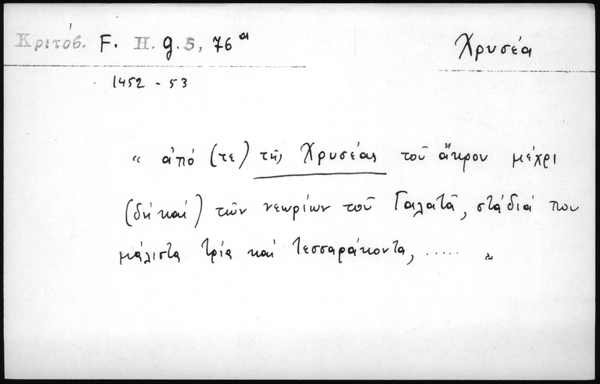 Κριτόβ. F. H. g. 5, 76 α
Χρυσέα
1452 - 53
“ ἀπό (τε) τῆς Χρυσέας τοῦ ἄκρου μέχρι
(δὴ καὶ) τῶν νεωρίων τοῦ Γαλατᾶ, στάδιά που
μάλιστα τρία καὶ τεσσαράκοντα, ..... „